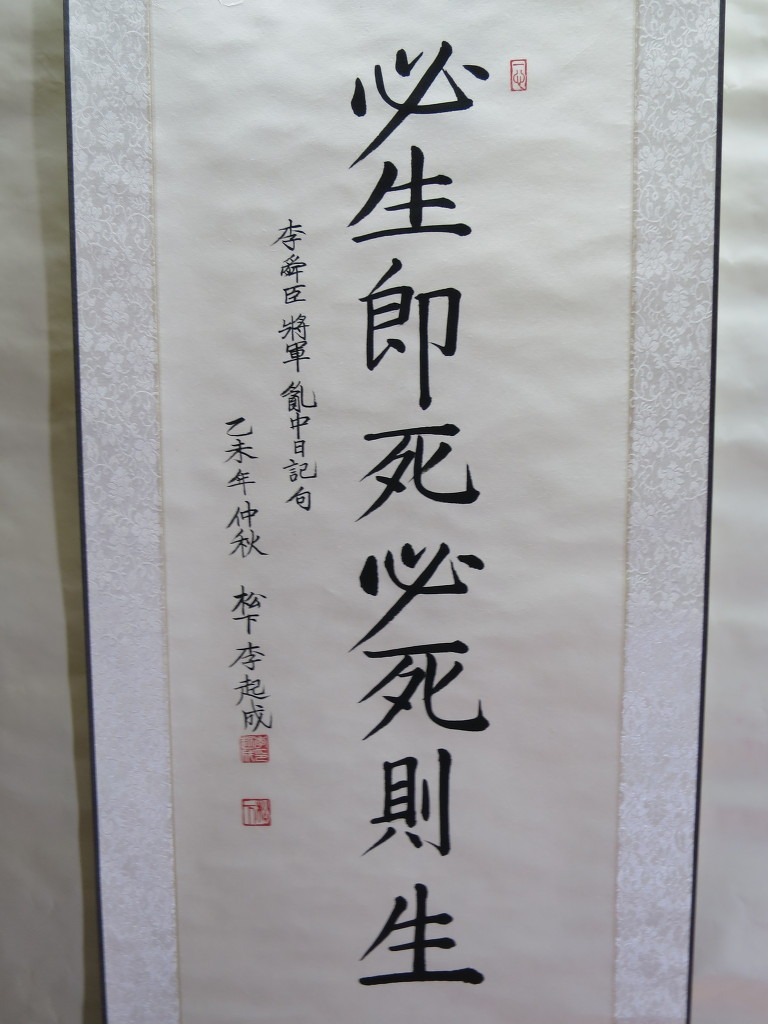 必生即死必死則生
李舜臣將軍亂中日記句
乙未年仲秋 松下李起成